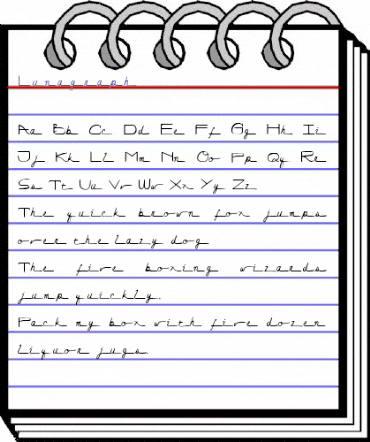 Lunagraph
Aa Bb Cc Dd Ee Ff Gg Hh Ii
Jj Kk Ll Mm Nn Oo Pp Qq Rr
Ss Tt Uu Vv Ww Xx Yy Zz
The quick brown fox jumps
over the lazy dog
The five boxing wizards
jump quickly.
Pack my box with five dozen
liquor jugs.